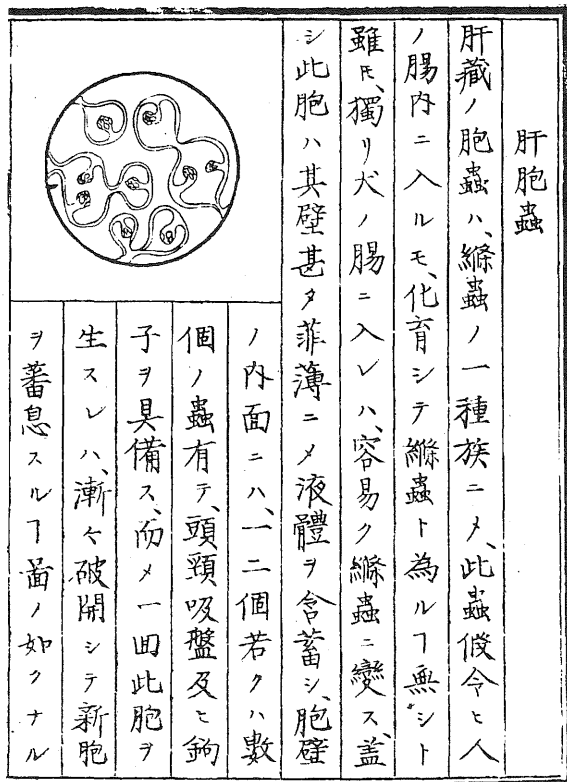 肝胞蟲
肝藏ノ胞蟲ハ、縧蟲ノ一種族ニメ、此蟲假令ヒ人
ノ腸内ニ入ルモ、化育シテ縧蟲ト為ルヿ無シト
雖𪜈、獨リ犬ノ腸ニ入レハ、容易ク縧蟲ニ變ス、蓋
シ此胞ハ其壁甚タ菲薄ニメ液體ヲ含蓄シ、胞壁
ノ内面ニハ、一二個若クハ數
個ノ蟲有テ、頭頸吸盤及ヒ鉤
子ヲ具備ス、而メ一囬此胞ヲ
生スレハ、漸々破開シテ新胞
ヲ蕃息スルヿ啚ノ如クナル